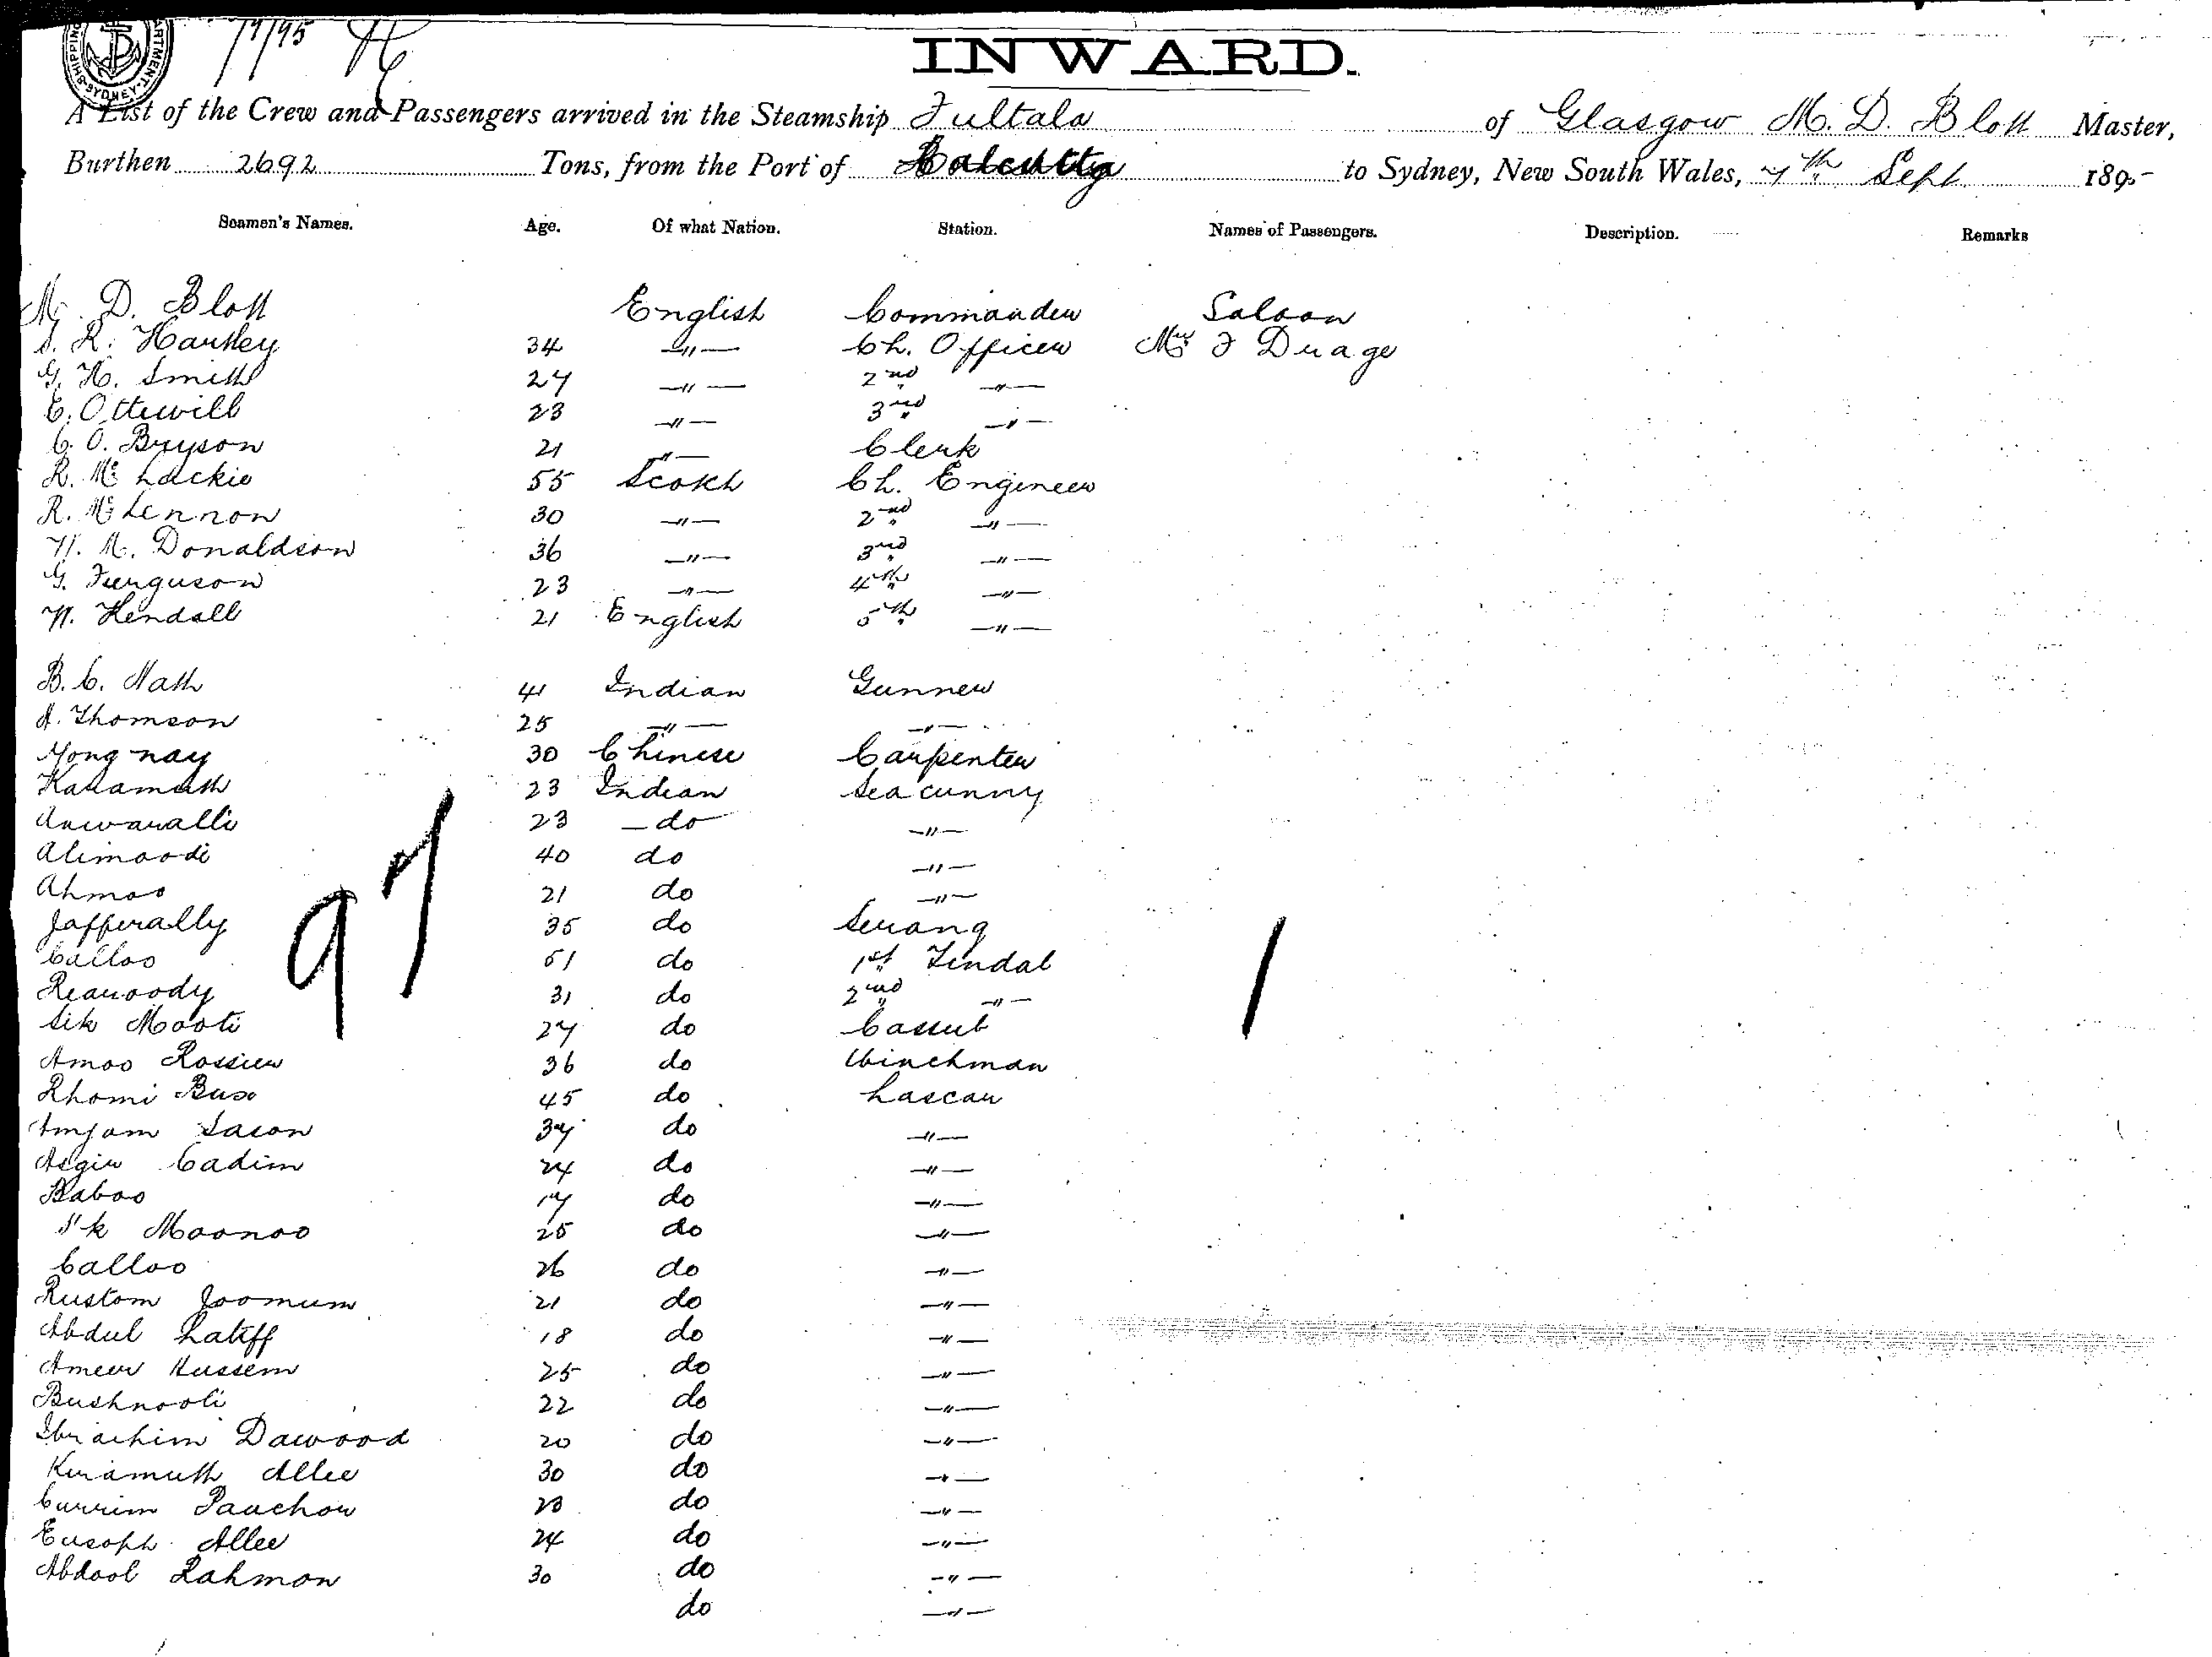 7/9/95
INWARD.
A List of the Crew and Passengers arrived in the Steamship Fultala of Glasgow M. D. Blott Master,
Burthen 2692 Tons, from the Port of Calcutta to Sydney, New South Wales, 7th Sept 1895
Seamen's Names. Age. Of what Nation. Station. Names of Passengers. Description. Remarks
M. D. Blott English Commander Saloon
S. R. Hartley 34 —"— Ch. Officer Mr J Drage
G. H. Smith 27 —"— 2nd —"—
E. Ottewill 23 —"— 3rd —"—
C. O. Bryson 21 —"— Clerk
R. Mc Lackie 55 Scotch Ch. Engineer
R. Mc Lennon 30 —"— 2nd —"—
W. M. Donaldson 36 —"— 3rd —"—
G. Ferguson 23 —"— 4th —"—
W. Kendall 21 English 5th —"—
B. C. Nath 41 Indian Gunner
A. Thomson 25 —"— —"—
Yong nay 30 Chinese Carpenter
Karamath 23 Indian Seacunny
Anwaralli 23 — do —"—
Alimoodi 40 do —"—
Ahmoo 21 do —"—
Jafferally 35 do Serang
Calloo 51 do 1st Tindal
Reawoody 31 do 2nd —"—
Sik Mooti 27 do Cassub
Amoo Rossier 36 do Winchman
Rhomi Bux 45 do Lascar
Amjam Sacon 37 do —"—
Asgir Cadim 24 do —"—
Baboo 17 do —"—
Sk Moonoo 25 do —"—
Calloo 26 do —"—
Rustom Joomum 21 do —"—
Abdul Latiff 18 do —"—
Ameer Hussem 25 do —"—
Bushnooti 22 do —"—
Ibrachim Dawood 20 do —"—
Keramuth Allee 30 do —"—
Currim Pauchou 23 do —"—
Eusoph Allee 24 do —"—
Abdool Rahmon 30 do —"—
do —"—
97 1